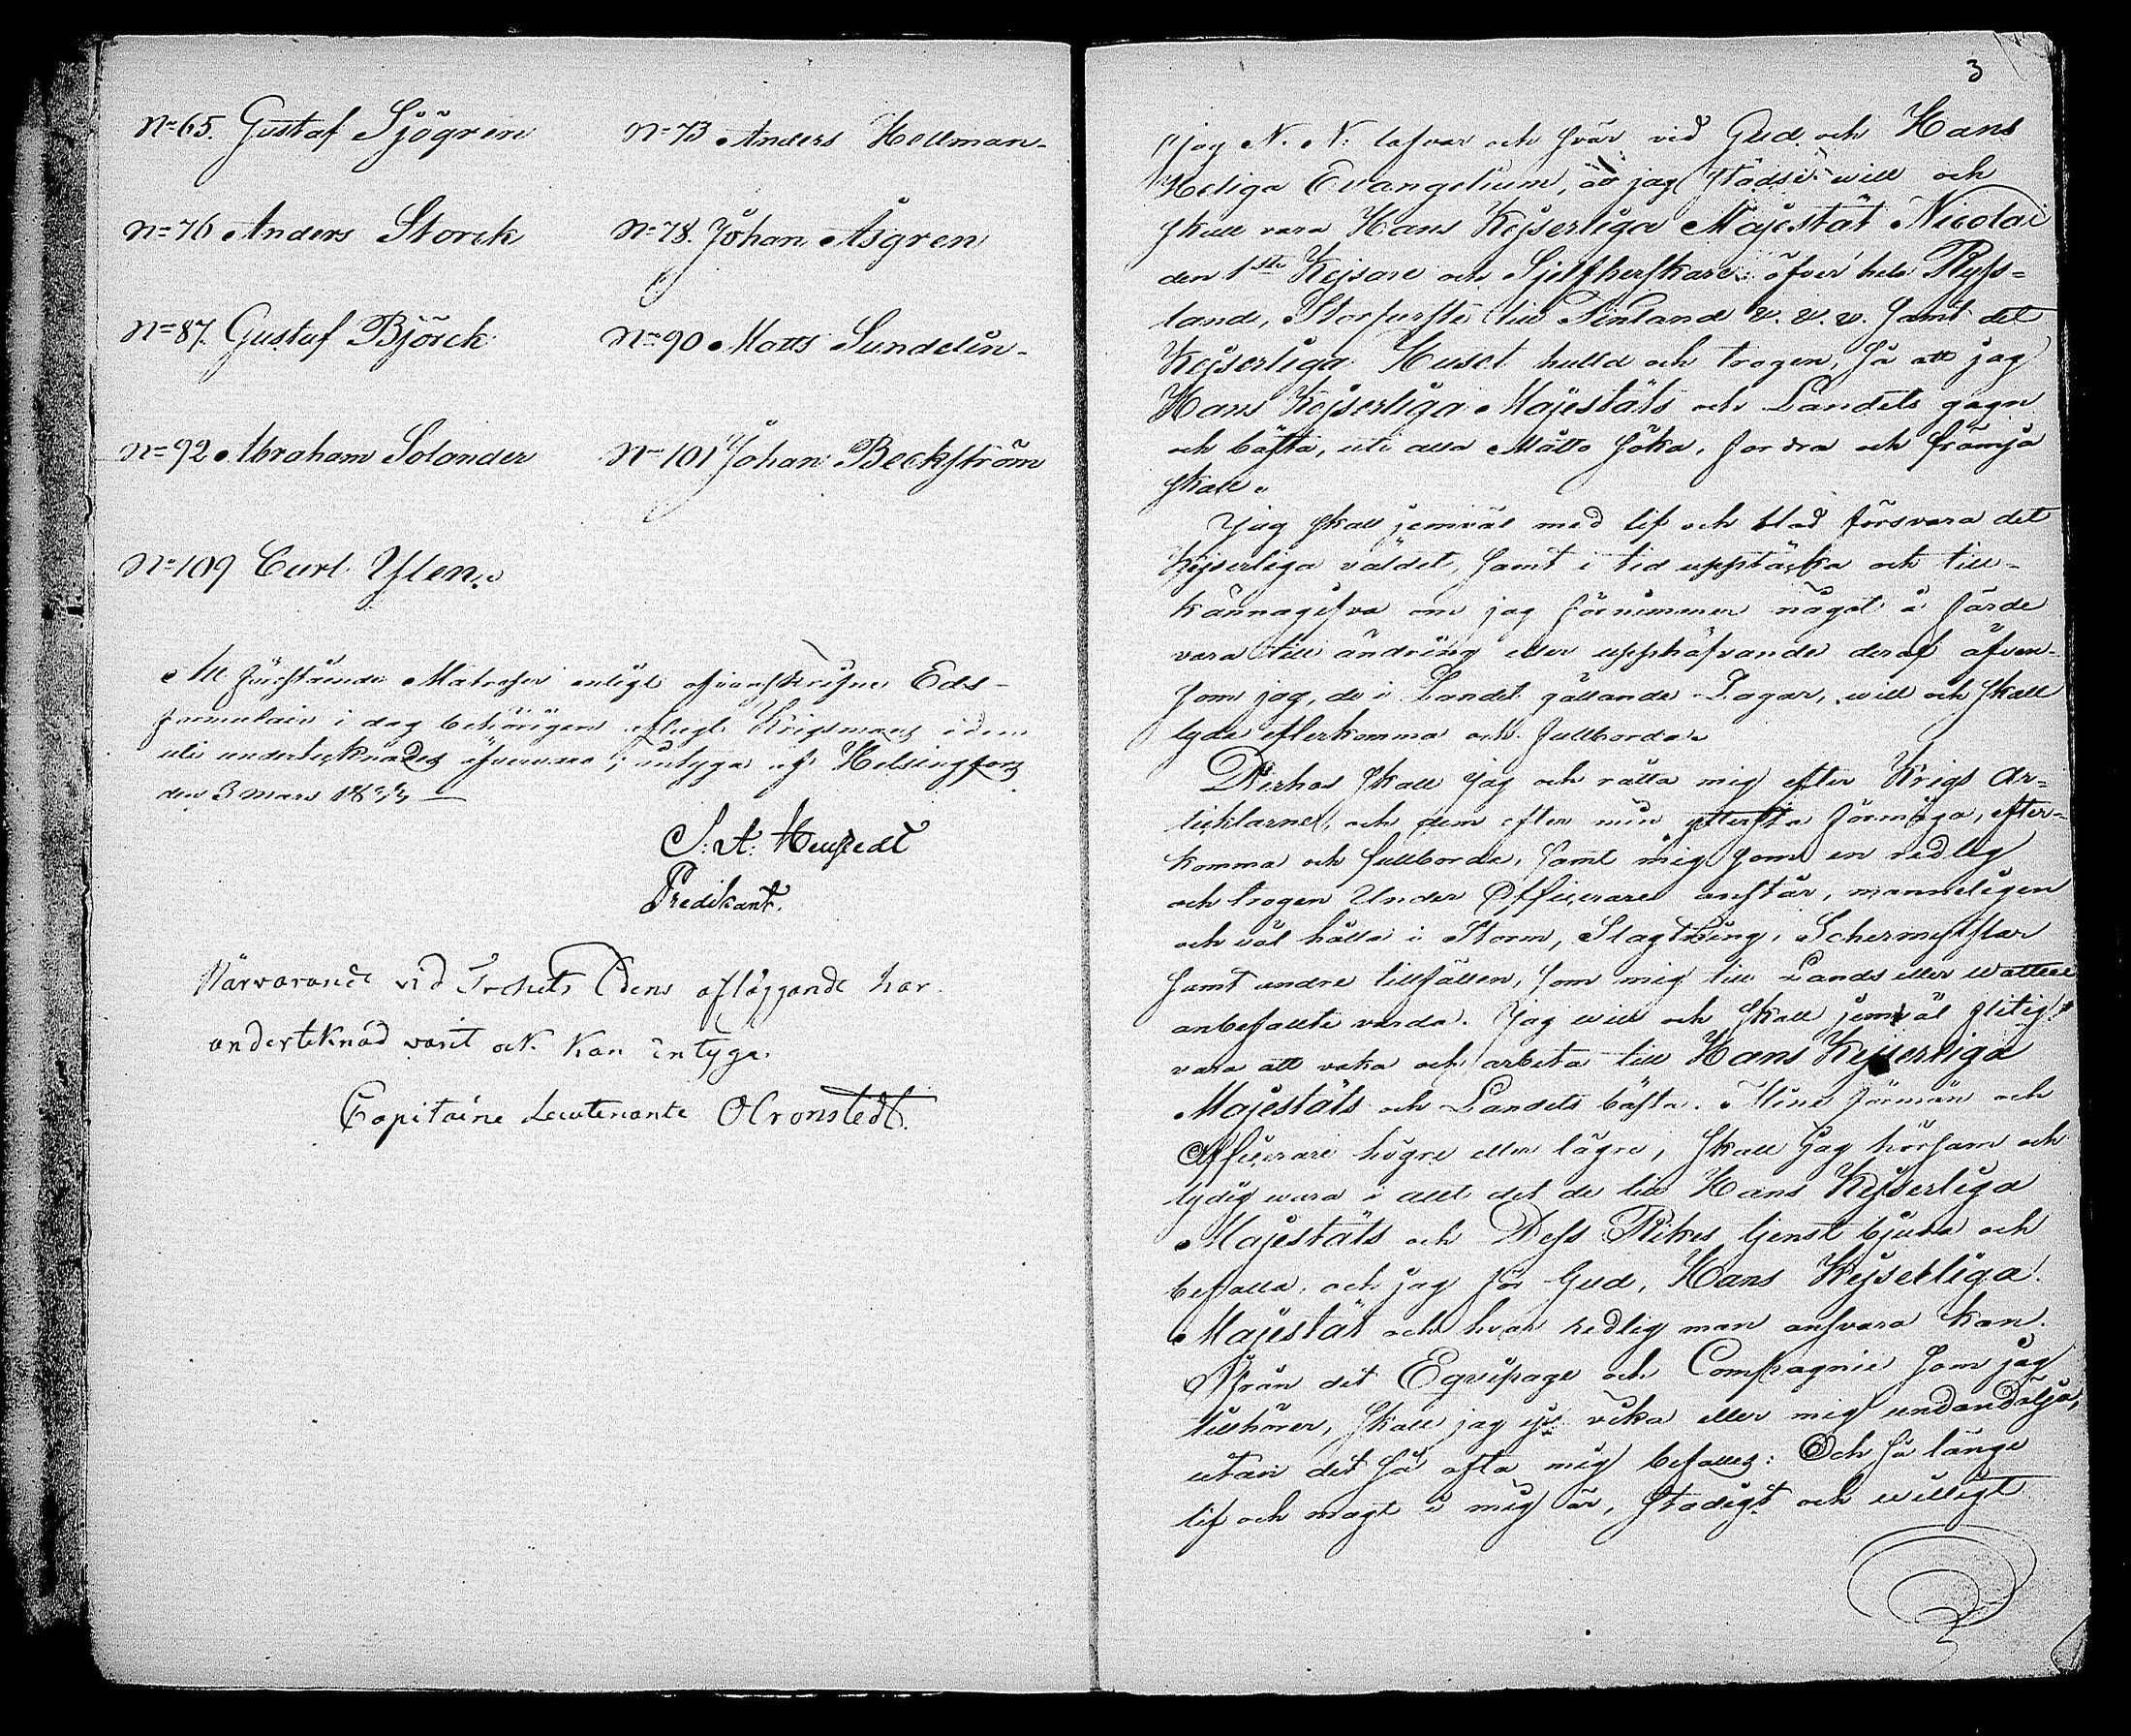 N:o 65. Gustaf Sjögren
N:o 73 Anders Hellman.
N:o 76 Anders Storck
N:o 78. Johan Åsgren
N:o 87. Gustaf Björck
N:o 90 Matts Sundelin.
N:o 92 Abraham Solander
N:o 101 Johan Beckström
N:o 109 Carl Ylen.
Att förestående Matroser enligt ofvanskrifne Eds-
formulair i dag behörigen aflagt Krigsmans eden
uti undertecknades öfvervaro; intygas af Helsingfors
den 3 Mars
S: A:
Predikant.
Närvarande vid Trohets Edens afläggande har
underteknad varit och kan intyga.
Capitaine Leutenante O Cronstedt.
3
"Jag N. N: lofvar och svär vid Gud och Hans
Heliga Evangelium, at jag städse will och
skall vara Hans Kejserliga Majestät Nicolai
den 1ste Kejsare och Sjelfherskare öfver hela Ryss=
land, Storfurste till Finland &. &. &. samt det
Kejserliga Huset huld och trogen, så att jag
Hans Kejserliga Majestäts och Landets gagn
och bästa, uti alla Måtto söka, fordra och främja
skall.
Jag skall jemväl med lif och blod försvara det
Kejserliga väldet, samt i tid upptäcka och till-
kännagifva om jag förnimmer något å färde
vara till ändring eller upphäfvande deraf äfven-
som jag, de i Landet gällande Lagar, will och skall
lyda efterkomma och fullborda.
Derhos skall jag och rätta mig efter Krigs Ar=
tiklarne, och dem efter min yttersta förmåga, efter=
komma och fullborda, samt mig som en redlig
och trogen Under Officerare anstår, manneligen
och väl hålla i Storm, Slagtning, Schermytslar
samt andra tillfällen, som mig till Lands eller watten
anbefallte varda. Jag will och skall jemväl flitig
vara att vaka och arbeta till Hans Kejserliga
Majestäts och Landets bästa. Mine förmän och
Officerare högre eller lägre, skall jag hörsam och
lydig wara i allt det de till Hans Kejserliga
Majestäts och Dess Rikes tjenst bjuda och
befalla, och jag för Gud, Hans Kejserliga
Majestät och hvar redlig man ansvara kan.
Ifrån det Equipage och Compagnie som jag
tillhörer, skall jag ej vika eller mig undandölja,
utan det så ofta mig befalles: Och så länge
lif och magt i mig är, stadigt och willigt